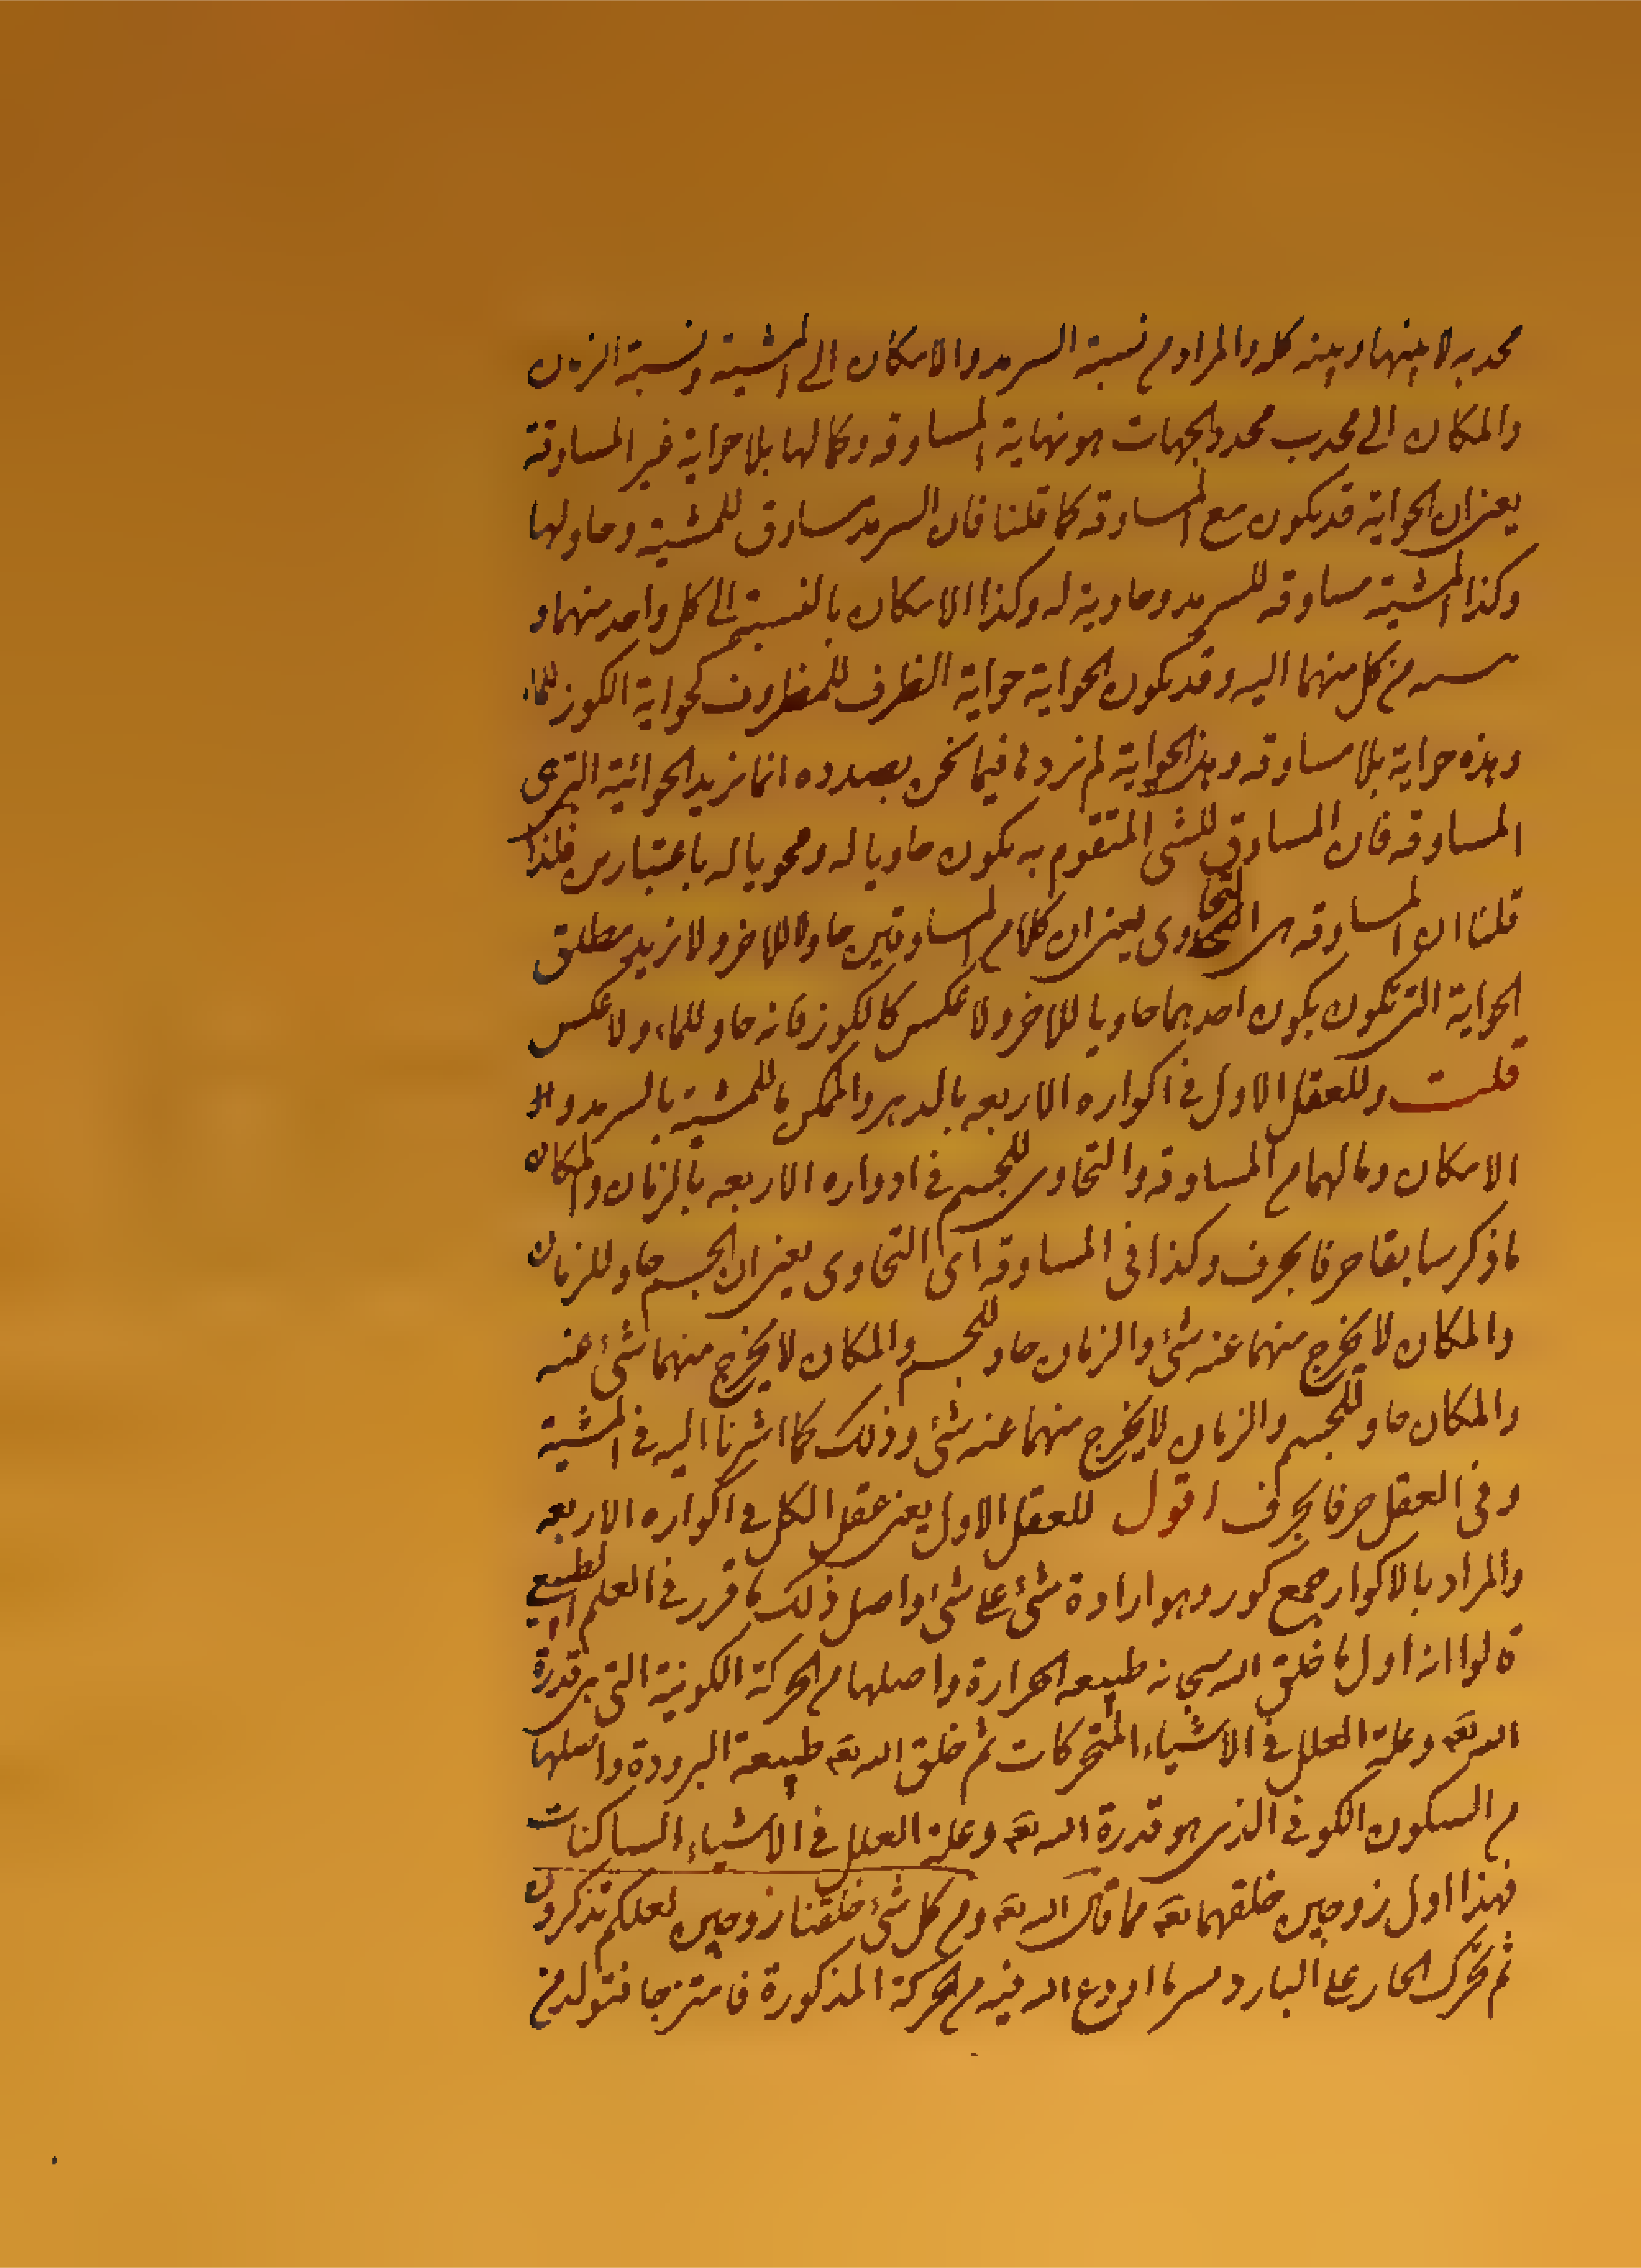 محدبه لا بينهما وبينه كله والمراد من نسبة السرمد والامكان الى المشية ونسبة الزمان
والمكان الى محدب محدد الجهات هو نهاية المساوقه وكمالها بلا حواية غير المساوقة
يعنى ان الحواية قد يكون مع المساوقه كما قلنا فان السرمد مساوق للمشية وحاو لها
وكذا المشية مساوقه للسرمد وحاوية له وكذا الامكان بالنسبة الى كل واحد منهما و
من كل منهما اليه وقد يكون الحواية حواية الظرف للمظروف كحواية الكوز للماء
وهذه حواية بلا مساوقه وهذه الحواية لم نردها فيما نحن بصدده انما نريد الحوائية التى هى
المساوقه فان المساوق للشئ المتقوم به يكون حاويا له ومحويا له باعتبارين فلذا
قلنا ان المساوقه هى التحاوى يعنى ان كلا من المساوقين حاو للاخر ولا نريد مطلق
الحواية التى تكون بكون احدهما حاويا للاخر ولا عكس كالكوز فانه حاو للماء ولا عكس
قلت وللعقل الاول فى اكواره الاربعه بالدهر والممكن ما للمشية بالسرمد و
الامكان وما لهما من المساوقه والتحاوى للجسم فى ادواره الاربعه بالزمان والمكان
ما ذكر سابقا حرفا بحرف وكذا فى المساوقه اى التحاوى يعنى ان الجسم حاو للزمان
والمكان لا يخرج منهما عنه شئ والزمان حاو للجسم والمكان لا يخرج منهما شئ عنه
والمكان حاو للجسم والزمان لا يخرج منهما عنه شئ وذلك كما اشرنا اليه فى المشية
وفى العقل حرفا بحرف اقول للعقل الاول يعنى عقل الكل فى اكواره الاربعه
والمراد بالاكوار جمع كور وهو ارادة شئ على شئ واصل ذلك ما قرر فى العلم الطبيعى
قالوا ان اول ما خلق الله سبحانه طبيعه الحرارة واصلها من الحركة الكونية التى هى قدرة
الله تعه وعلة العلل فى الاشياء المتحركات ثم خلق الله تعه طبيعة البرودة واصلها
من السكون الكونى الذى هو قدرة الله تعه وعلة العلل فى الاشياء الساكنات
فهذا اول زوجين خلقهما تعه مما قال الله تعه ومن كل شئ خلقنا زوجين لعلكم تذكرون
ثم تحرك الحار على البارد بسر ما اودع الله فيه من الحركة المذكورة فامتزجا فتولد من